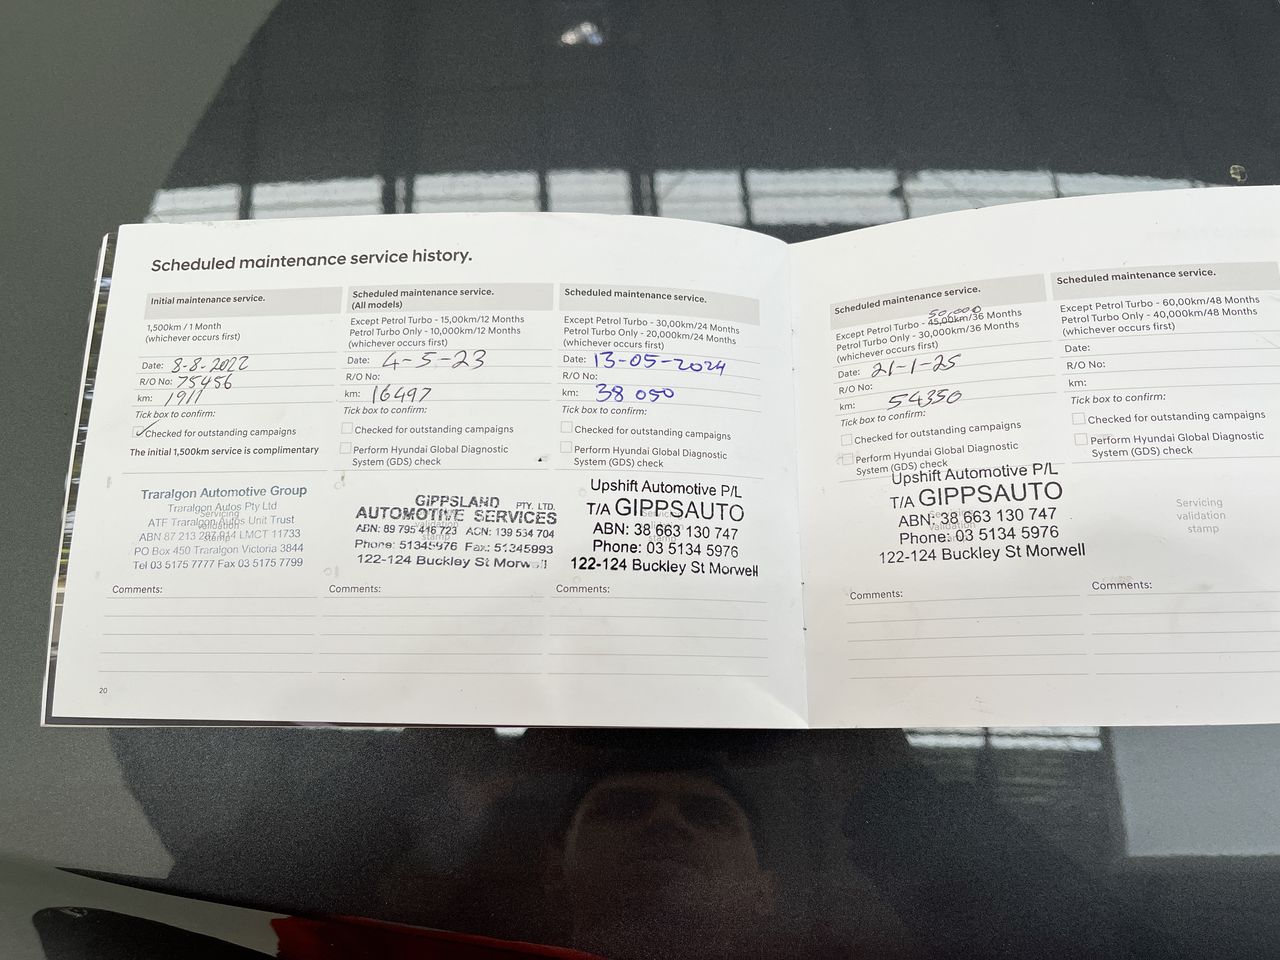 Scheduled maintenance service history.
Initial maintenance service.
1,500km / 1 Month
(whichever occurs first)
Date: 8-8-2022
R/O No: 75456
km: 1911
Tick box to confirm:
Checked for outstanding campaigns
The initial 1,500km service is complimentary
Traralgon Automotive Group
Traralgon Autos Pty Ltd
ATF Traralgon Autos Unit Trust
ABN 87 213 287 914 LMCT 11733
PO Box 450 Traralgon Victoria 3844
Tel 03 5175 7777 Fax 03 5175 7799
Servicing
validation
stamp
Comments:
20
Scheduled maintenance service.
(All models)
Except Petrol Turbo - 15,00km/12 Months
Petrol Turbo Only - 10,000km/12 Months
(whichever occurs first)
Date: 4-5-23
R/O No:
km: 16497
Tick box to confirm:
Checked for outstanding campaigns
Perform Hyundai Global Diagnostic
System (GDS) check
GIPPSLAND PTY. LTD.
AUTOMOTIVE SERVICES
ABN: 89 795 416 723 ACN: 139 534 704
Phone: 51345976 Fax: 51345993
122-124 Buckley St Morwell
validation
stamp
Comments:
Scheduled maintenance service.
Except Petrol Turbo - 30,00km/24 Months
Petrol Turbo Only - 20,000km/24 Months
(whichever occurs first)
Date: 13-05-2024
R/O No:
km: 38 050
Tick box to confirm:
Checked for outstanding campaigns
Perform Hyundai Global Diagnostic
System (GDS) check
Upshift Automotive P/L
T/A GIPPSAUTO
ABN: 38 663 130 747
Phone: 03 5134 5976
122-124 Buckley St Morwell
Comments:
Scheduled maintenance service.
50,000
Except Petrol Turbo - 45,00km/36 Months
Petrol Turbo Only - 30,000km/36 Months
(whichever occurs first)
Date: 21-1-25
R/O No:
km: 54350
Tick box to confirm:
Checked for outstanding campaigns
Perform Hyundai Global Diagnostic
System (GDS) check
Upshift Automotive P/L
T/A GIPPSAUTO
ABN: 38 663 130 747
Phone: 03 5134 5976
122-124 Buckley St Morwell
Comments:
Scheduled maintenance service.
Except Petrol Turbo - 60,00km/48 Months
Petrol Turbo Only - 40,000km/48 Months
(whichever occurs first)
Date:
R/O No:
km:
Tick box to confirm:
Checked for outstanding campaigns
Perform Hyundai Global Diagnostic
System (GDS) check
Servicing
validation
stamp
Comments: